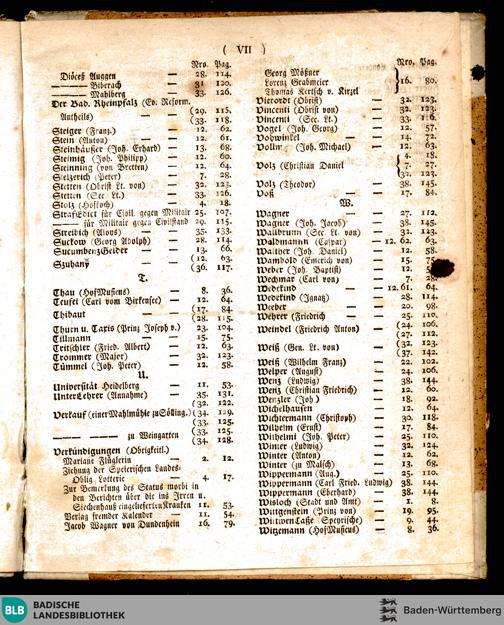 ( VII )
Nro. Pag.
Diöces Auggen — 28. 114.
——— Biberach — 31 120.
——— Mahlberg — 33. 126.
Der Bad. Rheinpfalz (Ev. Reform.
Antheils) — (29. 115.
(33. 118.
Steiger (Franz.) — 12. 62.
Stein (Anton) — 12. 61.
Steinhäußer (Joh. Erhard) 13. 68.
Steinnig (Joh. Philipp) — 12. 60.
Steinning (von Bretten) — 12. 64.
Stelzerich (Peter) — 7. 28.
Stetten (Obrist Lt. von) — 32. 123.
Stetten (Sec. Lt.) — 33. 126.
Stolz (Hoffoch) — 4. 18.
StrafEdict für Civil. gegen Militair 25. 107.
——— für Militair gegen Civilstand 29. 115.
Streibich (Aloys) — 35. 133.
Suckow (Georg Adolph) — 28. 114
SucumbenzGelder — 13. 66.
Szuhany — (12. 63.
(36. 117.
T.
Thau (HofMusicus) — 8. 36.
Teufel (Carl vom Birkensee) — 12. 64.
Thibaut — (17. 84.
(28. 115.
Thurn u. Taxis (Prinz Joseph v.) 23. 104.
Tillmann — 15. 75.
Tritschler (Fried. Albert) — 12. 63.
Trommer (Major) — 32. 123.
Tümmel (Joh. Peter) — 12. 58.
U.
Universität Heidelberg — 11. 53.
UnterLehrer (Annahme) — 35. 131.
(32. 122.
Verkauf (einer Mahlmühle zu Sölling.) (34. 129.
(33. 125.
——— zu Weingarten (33. 125.
(34. 128.
Verkündigungen (Obrigkeitl.)
Mariane Flüglerin — 2. 12.
Ziehung der Speierischen Landes-
Oblig. Lotterie — 4. 17.
Zur Bemerkung des Status morbi in
den Berichten über die ins Irren u.
Siechenhauß eingelieferten Kranken 11. 53.
Verlag fremder Kalender — 11. 54.
Jacob Wagner von Dundenheim 16. 79.
Nro. Pag.
Georg Mößner
Lorenz Grabmeier } 16. 80.
Thomas Kertsch v. Kirzel
Vierordt (Obrist) — 32. 123.
Vincenti (Obrist von) — 32. 123.
Vincenti (Sec. Lt.) — 33. 126.
Vogel (Joh. Georg) — 12. 57.
Vohwinkel — 14. 72.
Vollm (Joh. Michael) — 12. 63.
Volz (Christian Daniel — 4. 18.
7. 27.
32. 123.
Volz (Theodor) — 38. 145.
Voß — 17. 84.
W.
Wagner — 27. 112.
Wagner (Joh. Jacob) — 38. 145.
Waldbrunn (Sec. Lt. von) — 32. 123.
Waldmann (Caspar) — 12. 62. 63.
Walther (Joh. Daniel) — 12. 58.
Wambold (Emerich von) — 15. 75.
Weber (Joh. Baptist) — 12.
Wechmar (Carl von) — 7. 28.
Wedekind — 12. 61. 64.
Wedekind (Ignatz) — 28. 114.
Weeber — 20. 98.
Wehrer (Friedrich) — 25. 110.
Weindel (Friedrich Anton) — (24. 106.
(27. 112.
Weiß (Gen. Lt. von) — (32. 123.
(37. 142.
Weiß (Wilhelm Franz) — 22. 102.
Welper (August) — 24. 106.
Wenz (Ludwig) — 38. 144.
Wenz (Christian Friedrich) — 12. 60.
Wenzler (Joh) — 18. 92.
Wichelhausen — 12. 64.
Wichtermann (Christoph) — 30. 118.
Wilhelm (Ernst) — 17. 84.
Wilhelmi (Joh. Peter) — 25. 110.
Winter (Ludwig) — 32. 124.
Winter (Anton) — 12. 62.
Winter (zu Malsch) — 13. 68.
Wippermann (Aug.) — 25. 110.
Wippermann (Carl Fried. Ludwig) 38. 144.
Wippermann (Eberhard) — 38. 144.
Wisloch (Stadt und Amt) — 1. 8.
Wittgenstein (Prinz von) — 19. 95.
WittwenCasse Speyrische) — 9. 44.
Witzemann (HofMusicus) — 8. 36.
BLB BADISCHE
LANDESBIBLIOTHEK
Baden-Württemberg